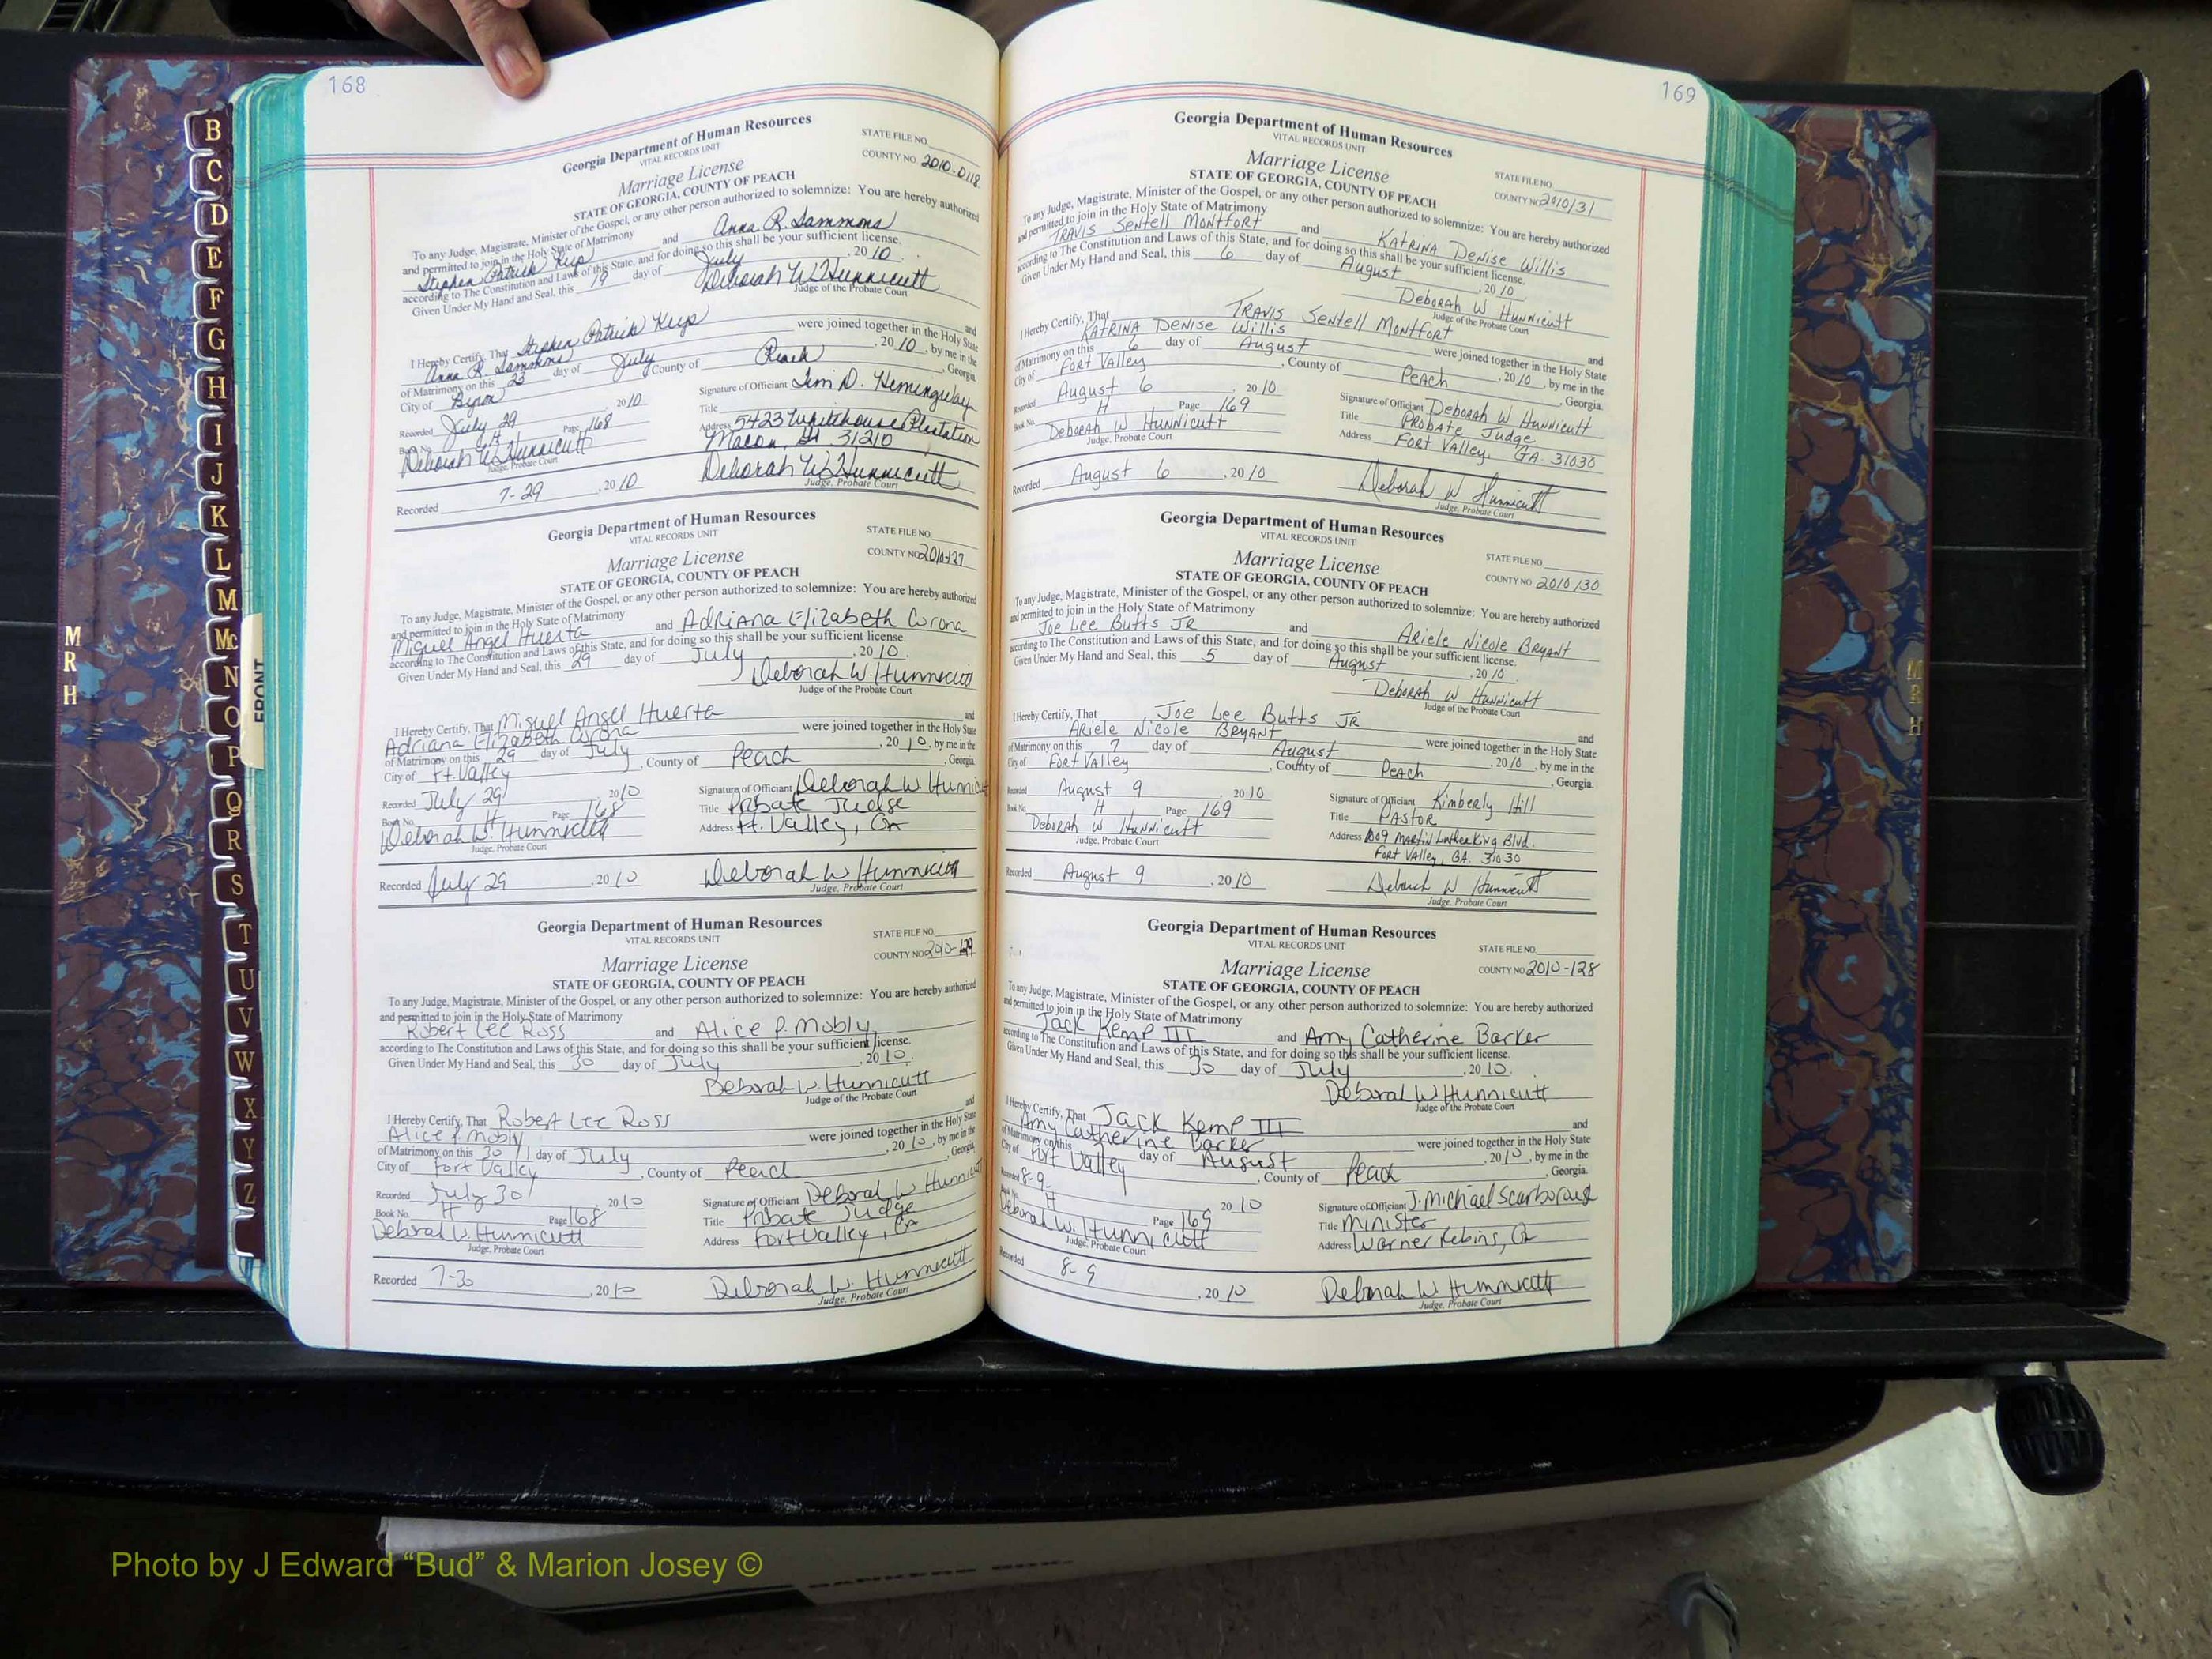 168
Georgia Department of Human Resources
VITAL RECORDS UNIT
STATE FILE NO.
Marriage License
COUNTY NO. 2010-0118
STATE OF GEORGIA, COUNTY OF PEACH
To any Judge, Magistrate, Minister of the Gospel, or any other person authorized to solemnize: You are hereby authorized
and permitted to join in the Holy State of Matrimony
Stephen Patrick and Anna R. Sammons
according to The Constitution and Laws of this State, and for doing so this shall be your sufficient license.
Given Under My Hand and Seal, this 19 day of July, 2010
Deborah W. Hunnicutt
Judge of the Probate Court
I Hereby Certify, That Stephen Patrick and
Anna R. Sammons were joined together in the Holy State
of Matrimony on this 23 day of July, 2010, by me in the
City of Byron, County of Peach, Georgia.
Recorded July 29, 2010 Signature of Officiant D. Hemingway
Book No. H Page 168 Title
Deborah W. Hunnicutt Address 5423 Plantation
Judge, Probate Court Macon, Ga 31210
Recorded 7-29, 2010 Deborah W. Hunnicutt
Judge, Probate Court
Georgia Department of Human Resources
VITAL RECORDS UNIT
STATE FILE NO.
Marriage License
COUNTY NO. 2010-127
STATE OF GEORGIA, COUNTY OF PEACH
To any Judge, Magistrate, Minister of the Gospel, or any other person authorized to solemnize: You are hereby authorized
and permitted to join in the Holy State of Matrimony
Miguel Angel Huerta and Adriana Elizabeth Corona
according to The Constitution and Laws of this State, and for doing so this shall be your sufficient license.
Given Under My Hand and Seal, this 29 day of July, 2010.
Deborah W. Hunnicutt
Judge of the Probate Court
I Hereby Certify, That Miguel Angel Huerta and
Adriana Elizabeth Corona were joined together in the Holy State
of Matrimony on this 29 day of July, 2010, by me in the
City of Ft. Valley, County of Peach, Georgia.
Recorded July 29, 2010 Signature of Officiant Deborah W Hunnicutt
Book No. H Page 168 Title Probate Judge
Deborah W. Hunnicutt Address Ft. Valley, Ga
Judge, Probate Court
Recorded July 29, 2010 Deborah W Hunnicutt
Judge, Probate Court
Georgia Department of Human Resources
VITAL RECORDS UNIT
STATE FILE NO.
Marriage License
COUNTY NO. 2010-129
STATE OF GEORGIA, COUNTY OF PEACH
To any Judge, Magistrate, Minister of the Gospel, or any other person authorized to solemnize: You are hereby authorized
and permitted to join in the Holy State of Matrimony
Robert Lee Ross and Alice P. Mobly
according to The Constitution and Laws of this State, and for doing so this shall be your sufficient license.
Given Under My Hand and Seal, this 30 day of July, 2010.
Deborah W. Hunnicutt
Judge of the Probate Court
I Hereby Certify, That Robert Lee Ross and
Alice P. Mobly were joined together in the Holy State
of Matrimony on this 30 day of July, 2010, by me in the
City of Fort Valley, County of Peach, Georgia.
Recorded July 30, 2010 Signature of Officiant Deborah W Hunnicutt
Book No. H Page 168 Title Probate Judge
Deborah W. Hunnicutt Address Fort Valley, Ga
Judge, Probate Court
Recorded 7-30, 2010 Deborah W. Hunnicutt
Judge, Probate Court
169
Georgia Department of Human Resources
VITAL RECORDS UNIT
STATE FILE NO.
Marriage License
COUNTY NO. 2010131
STATE OF GEORGIA, COUNTY OF PEACH
To any Judge, Magistrate, Minister of the Gospel, or any other person authorized to solemnize: You are hereby authorized
and permitted to join in the Holy State of Matrimony
TRAVIS Sentell Montfort and KATRINA Denise Willis
according to The Constitution and Laws of this State, and for doing so this shall be your sufficient license.
Given Under My Hand and Seal, this 6 day of August, 2010
Deborah W Hunnicutt
Judge of the Probate Court
I Hereby Certify, That TRAVIS Sentell Montfort and
KATRINA Denise Willis were joined together in the Holy State
of Matrimony on this 6 day of August, 2010, by me in the
City of Fort Valley, County of Peach, Georgia.
Recorded August 6, 2010 Signature of Officiant Deborah W Hunnicutt
Book No. H Page 169 Title Probate Judge
Deborah W Hunnicutt Address Fort Valley, GA. 31030
Judge, Probate Court
Recorded August 6, 2010 Deborah W Hunnicutt
Judge, Probate Court
Georgia Department of Human Resources
VITAL RECORDS UNIT
STATE FILE NO.
Marriage License
COUNTY NO. 2010130
STATE OF GEORGIA, COUNTY OF PEACH
To any Judge, Magistrate, Minister of the Gospel, or any other person authorized to solemnize: You are hereby authorized
and permitted to join in the Holy State of Matrimony
Joe Lee Butts JR and Ariele Nicole Bryant
according to The Constitution and Laws of this State, and for doing so this shall be your sufficient license.
Given Under My Hand and Seal, this 5 day of August, 2010
Deborah W Hunnicutt
Judge of the Probate Court
I Hereby Certify, That Joe Lee Butts JR and
Ariele Nicole Bryant were joined together in the Holy State
of Matrimony on this 7 day of August, 2010, by me in the
City of Fort Valley, County of Peach, Georgia.
Recorded August 9, 2010 Signature of Officiant Kimberly Hill
Book No. H Page 169 Title Pastor
Deborah W Hunnicutt Address 1009 Martin Luther King Blvd.
Judge, Probate Court Fort Valley, GA. 31030
Recorded August 9, 2010 Deborah W Hunnicutt
Judge, Probate Court
Georgia Department of Human Resources
VITAL RECORDS UNIT
STATE FILE NO.
Marriage License
COUNTY NO. 2010-128
STATE OF GEORGIA, COUNTY OF PEACH
To any Judge, Magistrate, Minister of the Gospel, or any other person authorized to solemnize: You are hereby authorized
and permitted to join in the Holy State of Matrimony
Jack Kemp III and Amy Catherine Barker
according to The Constitution and Laws of this State, and for doing so this shall be your sufficient license.
Given Under My Hand and Seal, this 30 day of July, 2010.
Deborah W Hunnicutt
Judge of the Probate Court
I Hereby Certify, That Jack Kemp III and
Amy Catherine Barker were joined together in the Holy State
of Matrimony on this day of August, 2010, by me in the
City of Fort Valley, County of Peach, Georgia.
Recorded 8-9, 2010 Signature of Officiant J. Michael Scarborough
Book No. H Page 169 Title Minister
Deborah W. Hunnicutt Address Warner Robins, Ga
Judge, Probate Court
Recorded 8-9, 2010 Deborah W Hunnicutt
Judge, Probate Court
B
C
D
E
F
G
H
I
J
K
L
M
Mc
N
O
P
Q
R
S
T
U
V
W
X
Y
Z
FRONT
M
R
H
M
R
H
Photo by J Edward “Bud” & Marion Josey ©